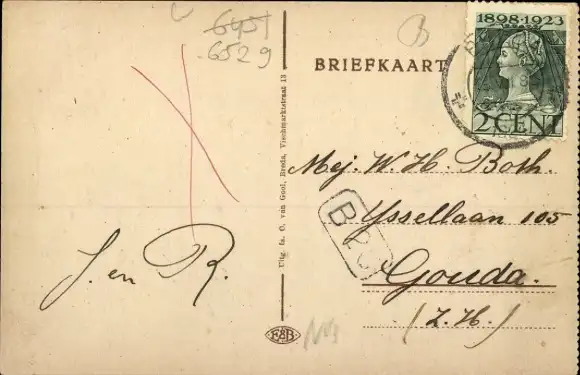 6451
6529
B
1898-1923
2 CENT
BRIEFKAART
Mej. W. H. Both.
Yssellaan 105
Gouda.
(Z. H.)
J. en R.
Uitg. fa. O. van Gool, Breda, Vischmarktstraat 13
E&B